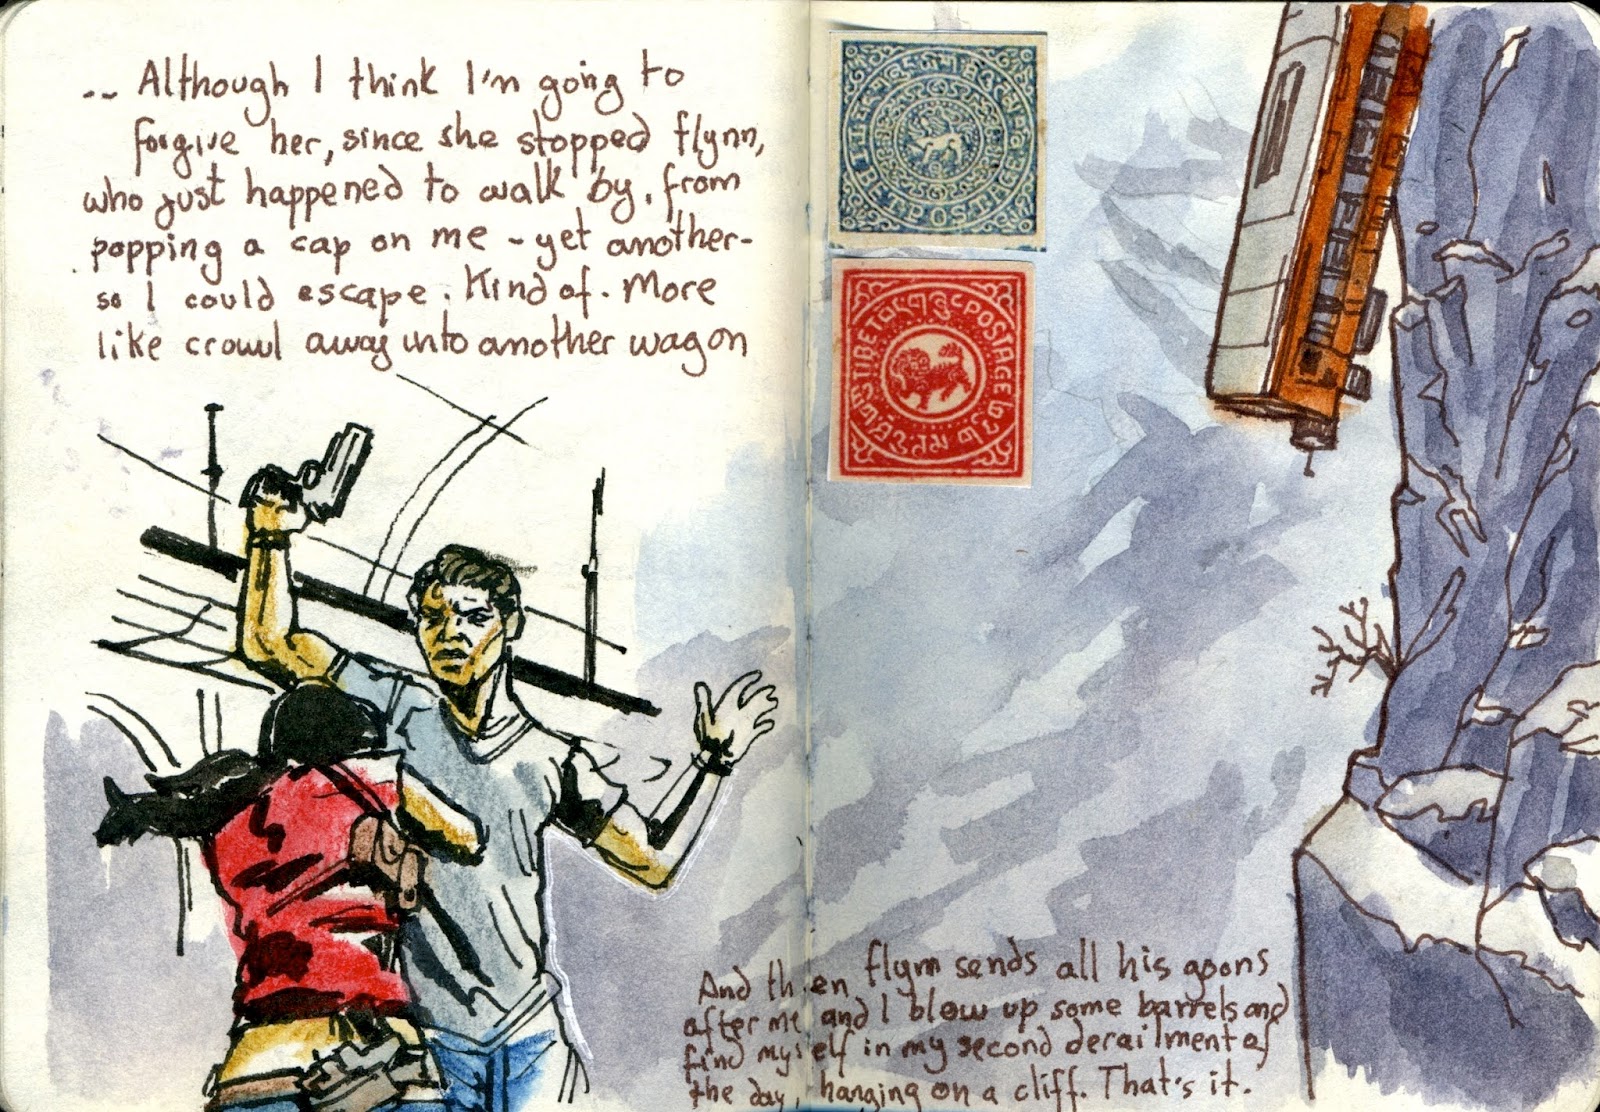 -- Although I think I'm going to
forgive her, since she stopped flynn,
who just happened to walk by, from
popping a cap on me - yet another-
so I could escape. Kind of. More
like crowl away into another wagon
POSTAGE
TIBET POSTAGE
And then flynn sends all his goons
after me and I blow up some barrels and
find myself in my second derailment of
the day, hanging on a cliff. That's it.